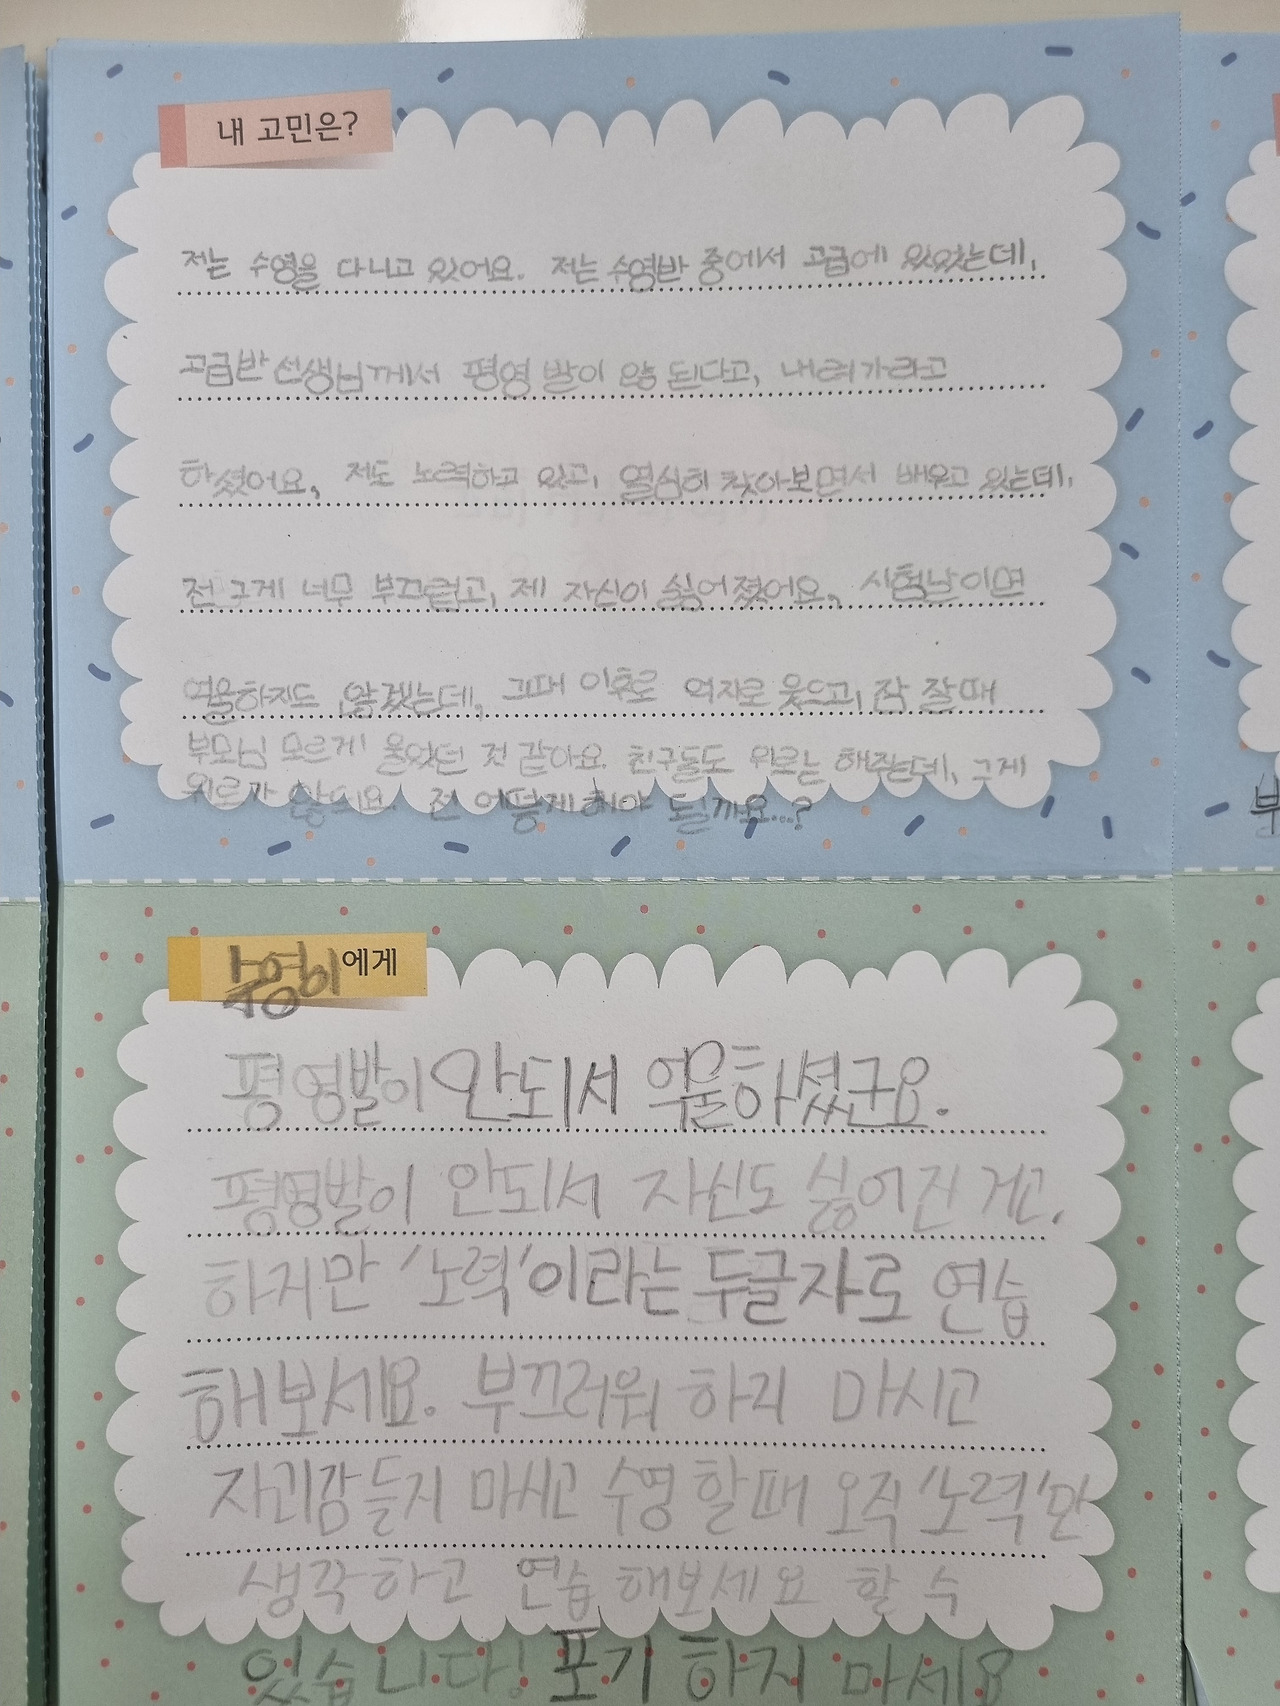 내 고민은?
저는 수영을 다니고 있어요. 저는 수영반 중에서 고급에 있었는데,
고급반 선생님께서 평영 발이 않 된다고, 내려가라고
하셨어요, 저도 노력하고 있고, 열심히 찾아보면서 배우고 있는데,
전 그게 너무 부끄럽고, 제 자신이 싫어졌어요, 시험날이면
억울하지도 않겠는데, 그때 이후로 억지로 웃으고, 잠 잘때
부모님 모르게 울었던 것 같아요. 친구들도 위로는 해주는데, 그게
위로가 않되요. 전 어떻게 해야 될까요...?
수영이에게
평영발이 안되서 억울하셨군요.
평영발이 안되서 자신도 싫어진 게고,
하지만 '노력'이라는 두글자로 연습
해보세요. 부끄러워 하지 마시고
자괴감 듣지 마시고 수영 할때 오직 '노력'만
생각하고 연습 해보세요 할 수
있습니다! 포기 하지 마세요
부